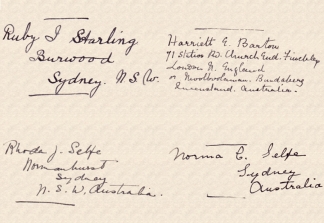 Ruby I Starling
Burwood
Sydney. N.S.W.
Harriett E. Barton
71 Station Rd. Church End. Finchley
London N. England
Bundaberg
Queensland. Australia.
Rhoda J. Selfe
Normanhurst
Sydney
N.S.W. Australia.
Norma C. Selfe
Sydney
Australia